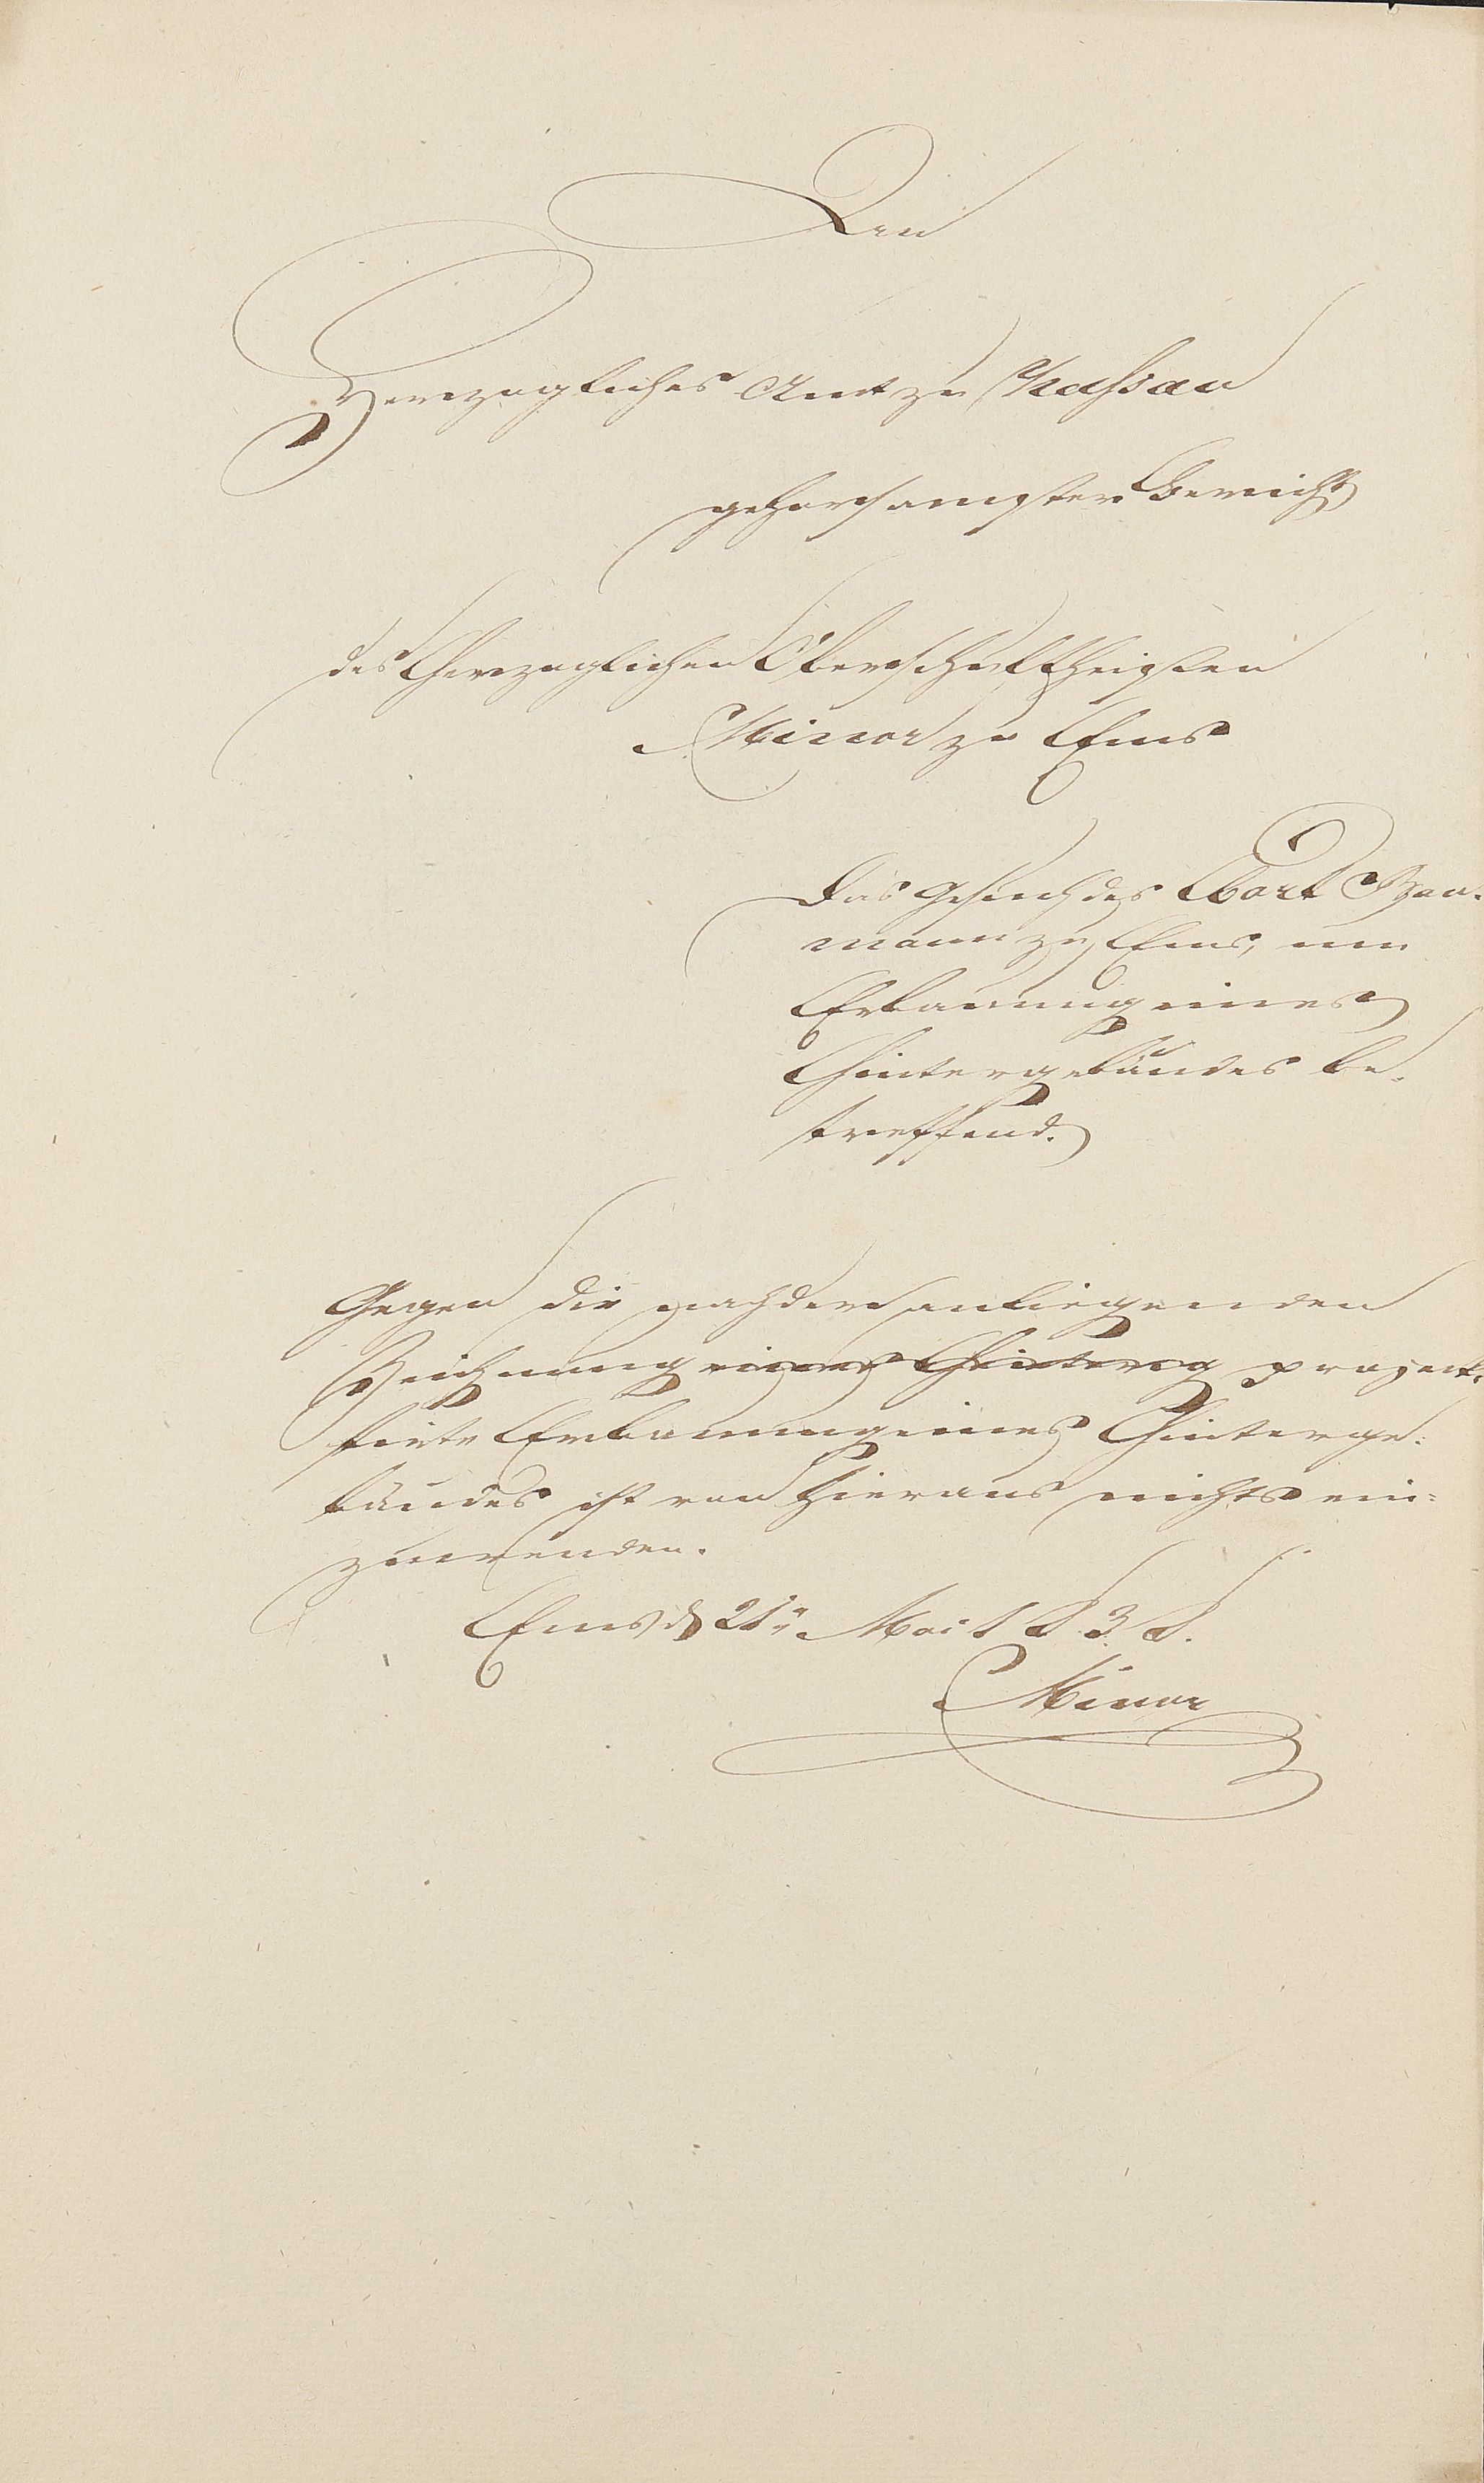 An
Herzogliches Amt zu Nassau
gehorsamster Bericht
des Herzoglichen Oberschultheißen
Minor zu Ems
Das Gesuch des
mann zu Ems, um
Erbauung eines
Hintergebäudes be-
treffend.
Gegen die nach der anliegenden
Zeichnung eines Hinterg projek-
tirte Erbauung eines Hinterge-
bäudes ist von hieraus nichts ein-
zuwenden.
Ems d 21n Mai 1838.
Minor